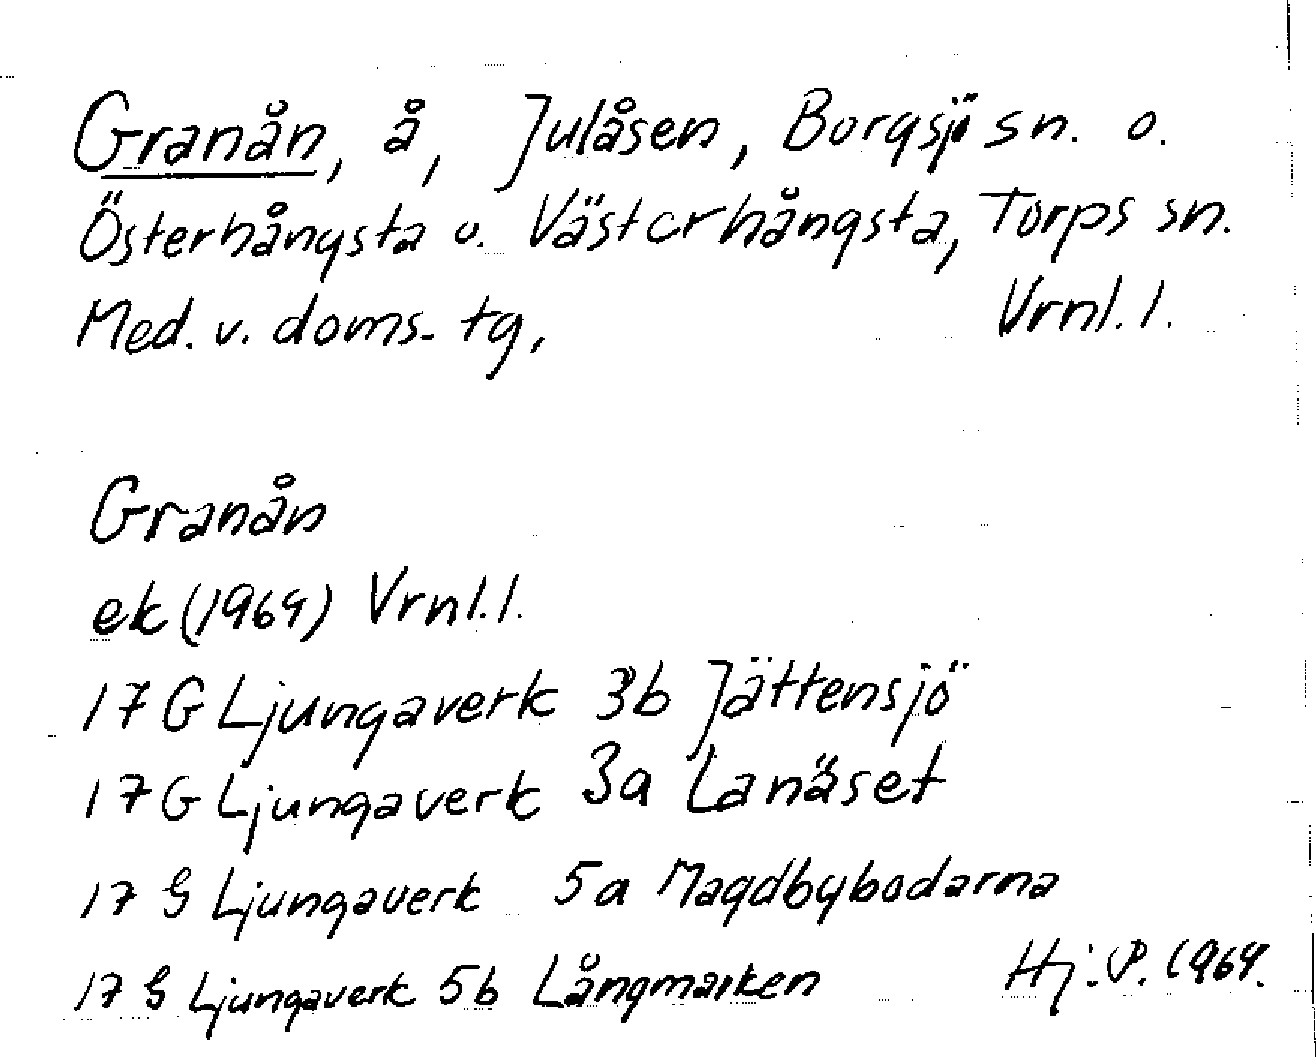 Granån, å, Julåsen, Borgsjö sn. o.
Österhångsta o. Västerhångsta, Torps sn.
Med. v. doms. tg, Vrnl. l.
Granån
ek (1964) Vrnl. l.
17 G Ljungaverk 3b Jättensjö
17 G Ljungaverk 3a Lanäset
17 G Ljungaverk 5a Magdbybodarna
17 G Ljungaverk 5b Långmarken Hj. P. 1964.